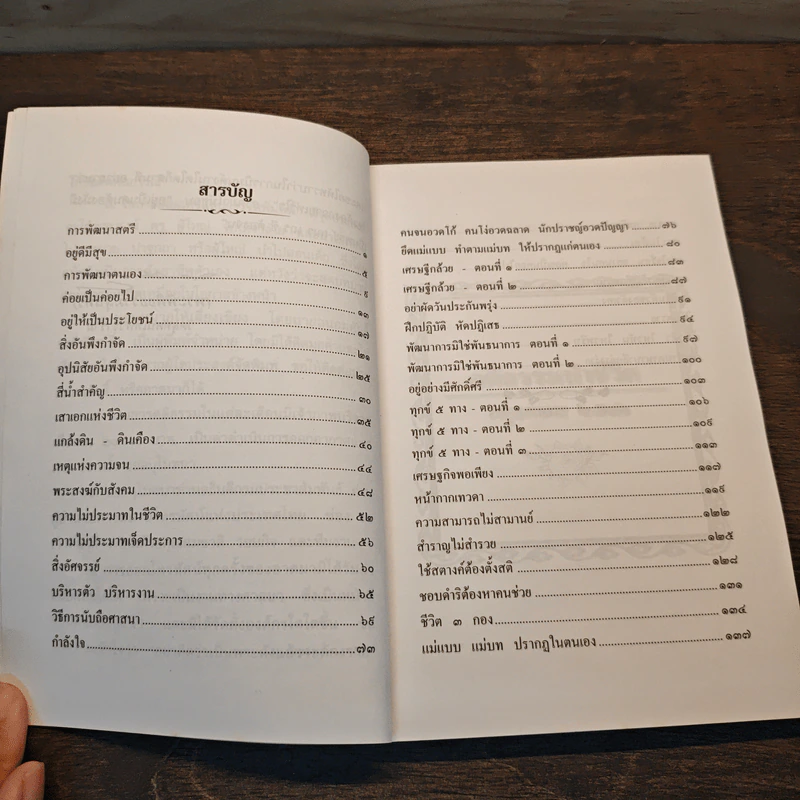 สารบัญ
การพัฒนาสตรี ๑
อยู่ดีมีสุข ๕
การพัฒนาตนเอง ๙
ค่อยเป็นค่อยไป ๑๓
อยู่ให้เป็นประโยชน์ ๑๗
สิ่งอันพึงกำจัด ๒๑
อุปนิสัยอันพึงกำจัด ๒๕
สี่น้ำสำคัญ ๓๐
เสาเอกแห่งชีวิต ๓๕
แกล้งดิน - ดินเคือง ๔๐
เหตุแห่งความจน ๔๔
พระสงฆ์กับสังคม ๔๘
ความไม่ประมาทในชีวิต ๕๒
ความไม่ประมาทเจ็ดประการ ๕๖
สิ่งอัศจรรย์ ๖๐
บริหารตัว บริหารงาน ๖๕
วิธีการนับถือศาสนา ๖๙
กำลังใจ ๗๓
คนจนอวดโก้ คนโง่อวดฉลาด นักปราชญ์อวดปัญญา ๗๖
ยึดแม่แบบ ทำตามแม่บท ให้ปรากฏแก่ตนเอง ๘๐
เศรษฐีกล้วย - ตอนที่ ๑ ๘๓
เศรษฐีกล้วย - ตอนที่ ๒ ๘๗
อย่าผัดวันประกันพรุ่ง ๙๑
ฝึกปฏิบัติ หัดปฏิเสธ ๙๔
พัฒนาการมิใช่พันธนาการ ตอนที่ ๑ ๙๗
พัฒนาการมิใช่พันธนาการ ตอนที่ ๒ ๑๐๐
อยู่อย่างมีศักดิ์ศรี ๑๐๓
ทุกข์ ๕ ทาง - ตอนที่ ๑ ๑๐๖
ทุกข์ ๕ ทาง - ตอนที่ ๒ ๑๐๙
ทุกข์ ๕ ทาง - ตอนที่ ๓ ๑๑๓
เศรษฐกิจพอเพียง ๑๑๗
หน้ากากเทวดา ๑๑๙
ความสามารถไม่สามานย์ ๑๒๒
สำราญไม่สำรวย ๑๒๕
ใช้สตางค์ต้องตั้งสติ ๑๒๘
ชอบดำริต้องหาคนช่วย ๑๓๑
ชีวิต ๓ กอง ๑๓๔
แม่แบบ แม่บท ปรากฏในตนเอง ๑๓๗